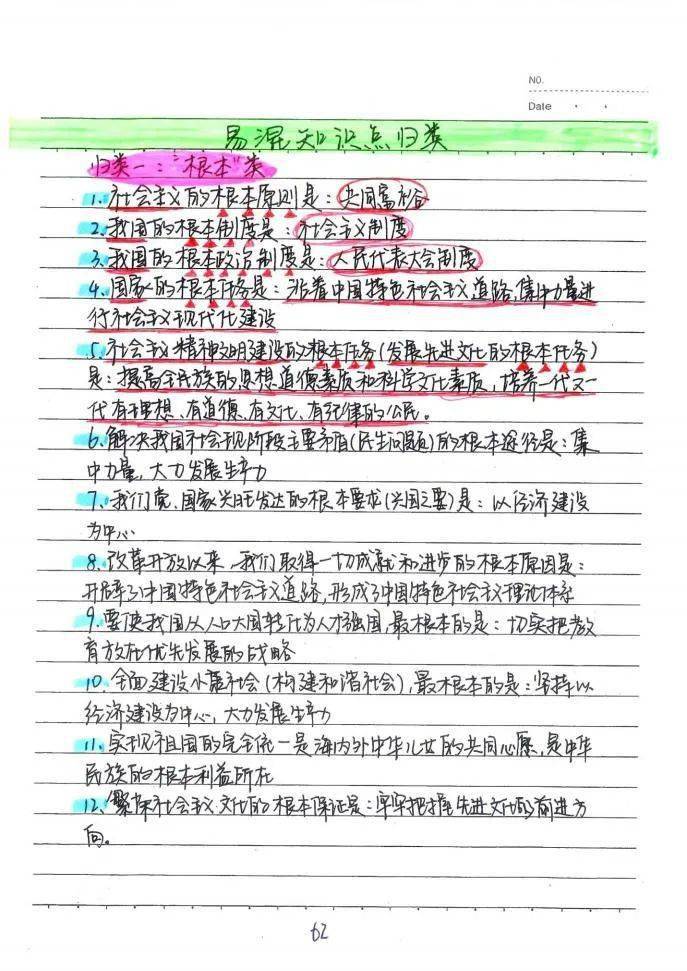 NO.
Date
易混知识点归类
归类一："根本"类
1. 社会主义的根本原则是：共同富裕
2. 我国的根本制度是：社会主义制度
3. 我国的根本政治制度是：人民代表大会制度
4. 国家的根本任务是：沿着中国特色社会主义道路，集中力量进
行社会主义现代化建设
5. 社会主义精神文明建设的根本任务(发展先进文化的根本任务)
是：提高全民族的思想道德素质和科学文化素质，培养一代又一
代有理想、有道德、有文化、有纪律的公民。
6. 解决我国社会现阶段主要矛盾(民生问题)的根本途径是：集
中力量，大力发展生产力
7. 我们党、国家兴旺发达的根本要求(兴国之要)是：以经济建设
为中心
8. 改革开放以来，我们取得一切成就和进步的根本原因是：
开辟了中国特色社会主义道路，形成了中国特色社会主义理论体系
9. 要使我国从人口大国转化为人才强国，最根本的是：切实把教
育放在优先发展的战略
10. 全面建设小康社会(构建和谐社会)，最根本的是：坚持以
经济建设为中心，大力发展生产力
11. 实现祖国的完全统一是海内外中华儿女的共同心愿，是中华
民族的根本利益所在
12. 繁荣社会主义文化的根本保证是：牢牢把握先进文化的前进方
向。
62